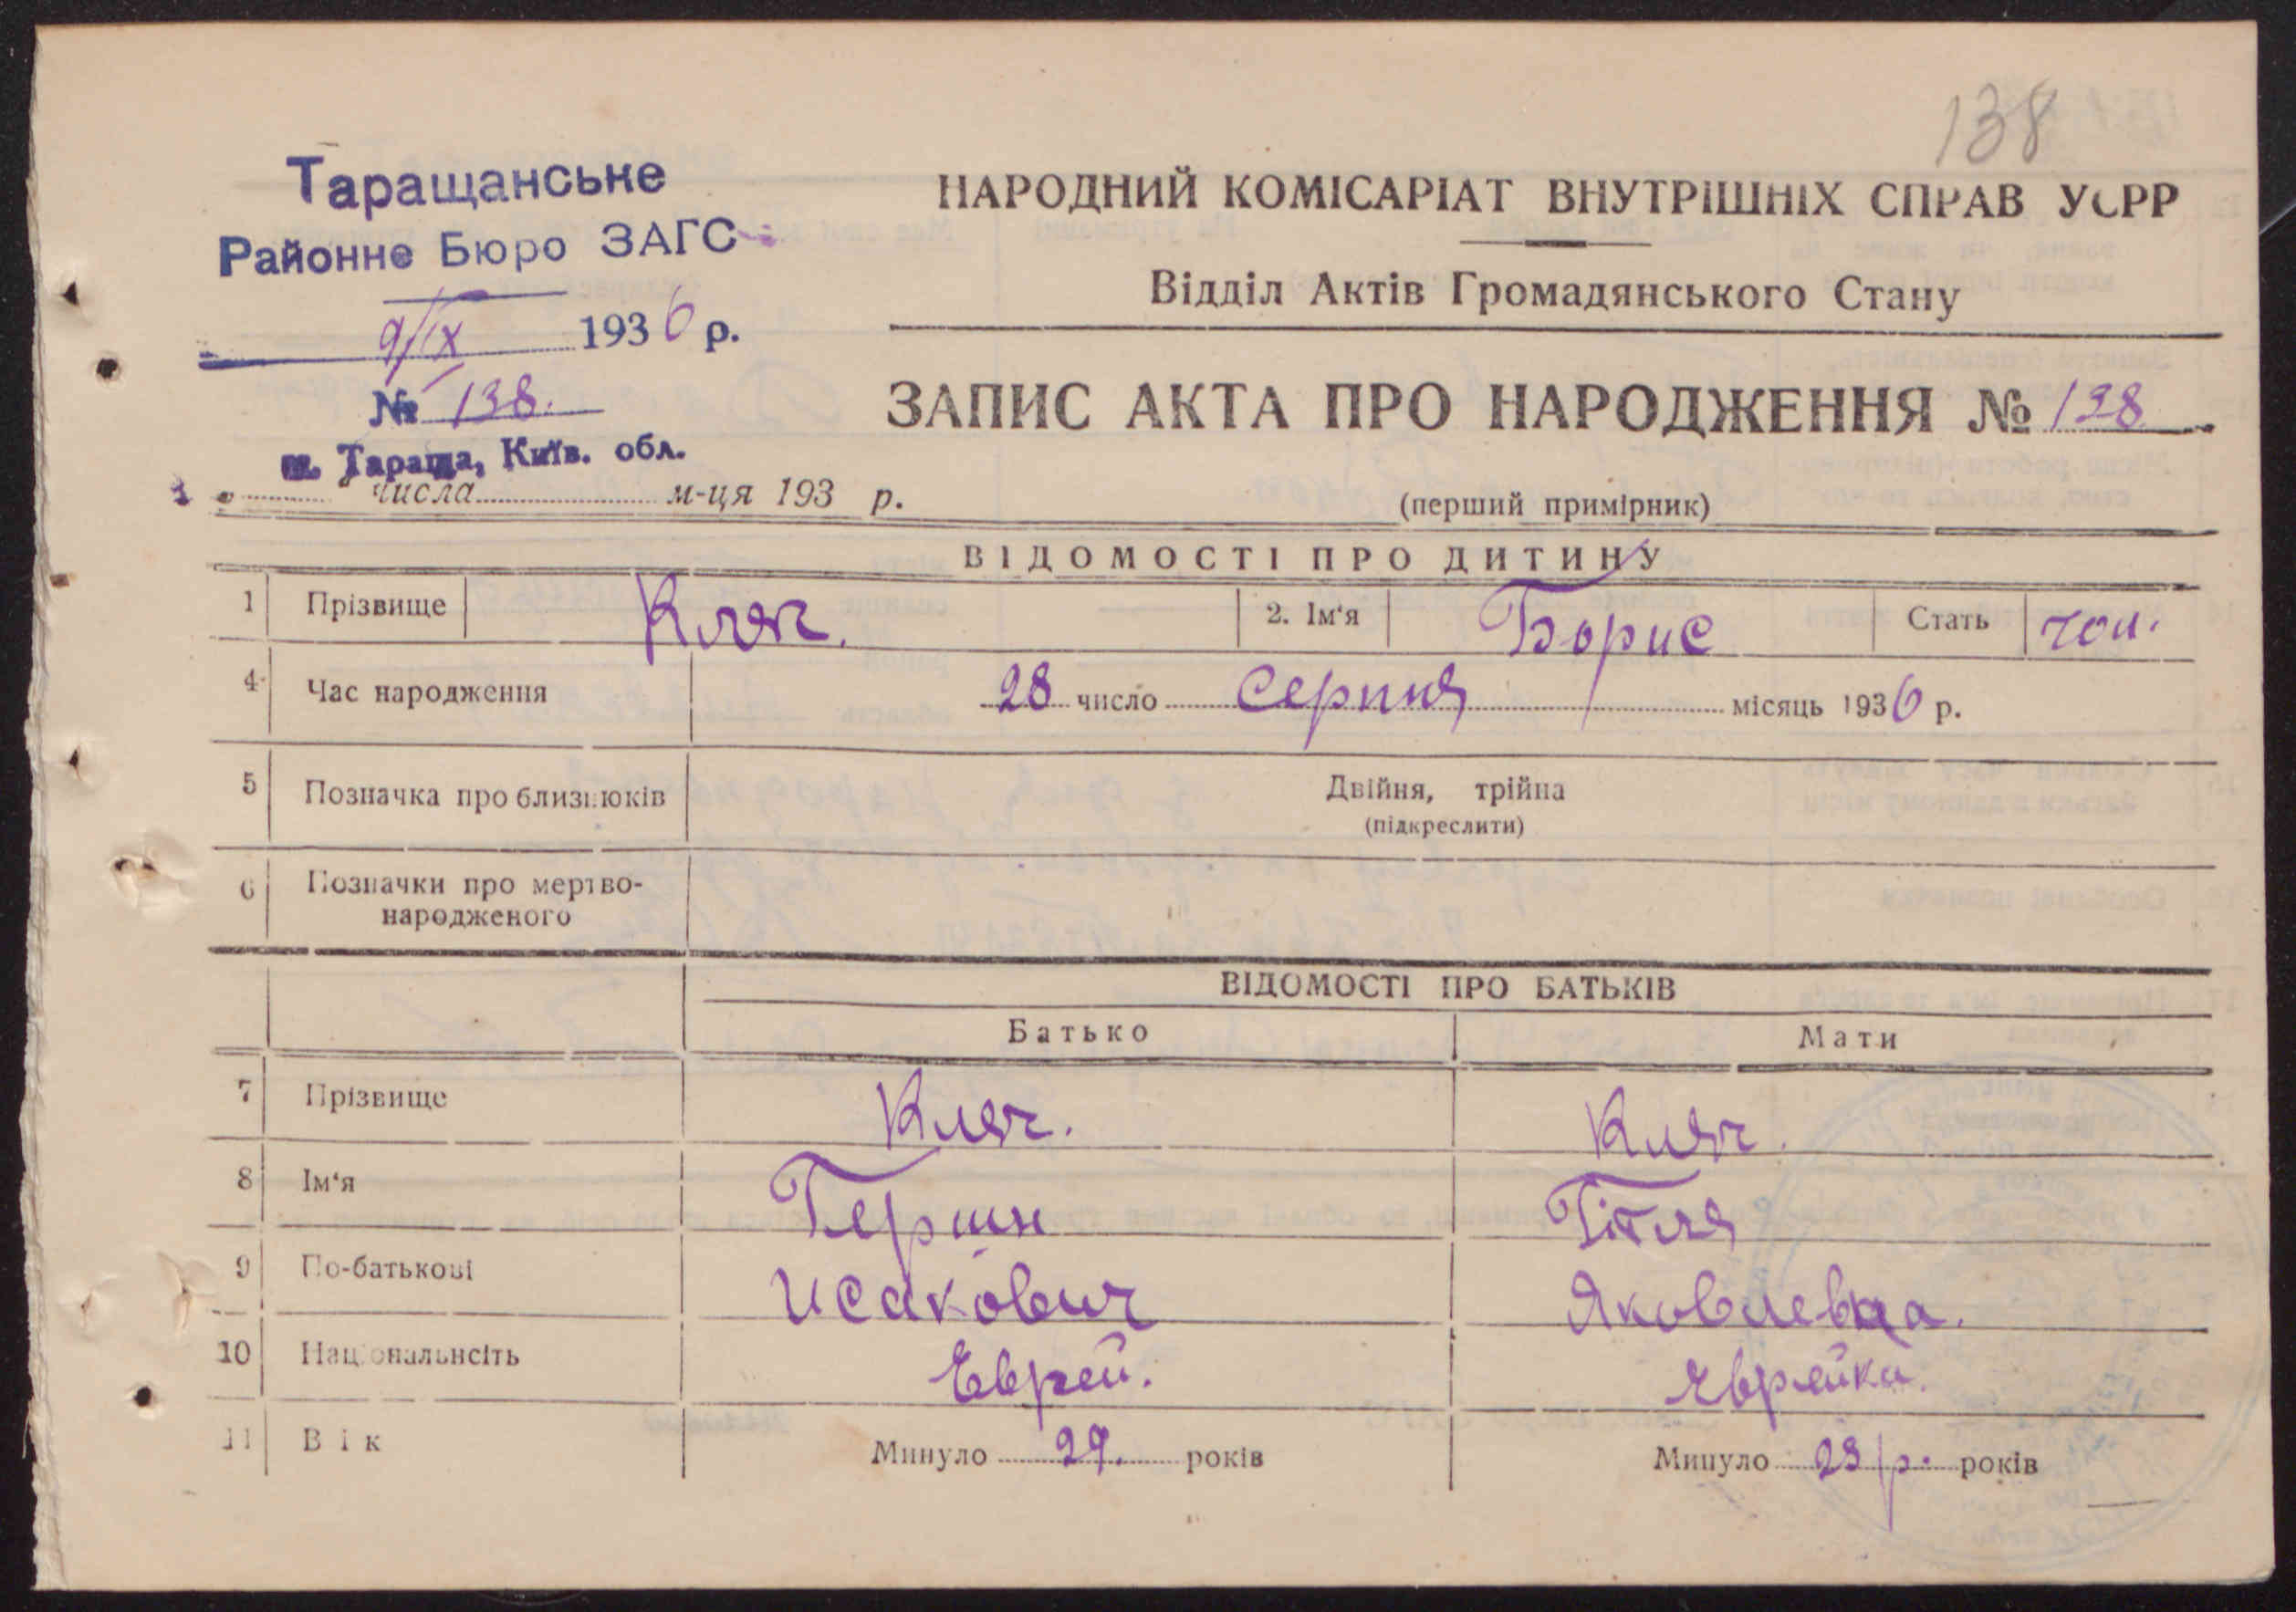 138
Таращанське
Районне Бюро ЗАГС
9/IX 1936 р.
№ 138.
м. Тараща, Київ. обл.
числа м-ця 193 р.
НАРОДНИЙ КОМІСАРІАТ ВНУТРІШНІХ СПРАВ УСРР
Відділ Актів Громадянського Стану
ЗАПИС АКТА ПРО НАРОДЖЕННЯ № 138
(перший примірник)
ВІДОМОСТІ ПРО ДИТИНУ
1 Прізвище Кляч. 2. Ім‘я Борис Стать чол.
4 Час народження 28 число Серпня місяць 1936 р.
5 Позначка про близнюків Двійня, трійна
(підкреслити)
6 Позначки про мертво-
народженого
ВІДОМОСТІ ПРО БАТЬКІВ
Батько Мати
7 Прізвище Кляч. Кляч.
8 Ім‘я Гершн Гітля
9 По-батькові Исакович Яковлевна.
10 Національнсіть Еврей. Яврейка.
11 Вік Минуло 29. років Минуло 23 р. років